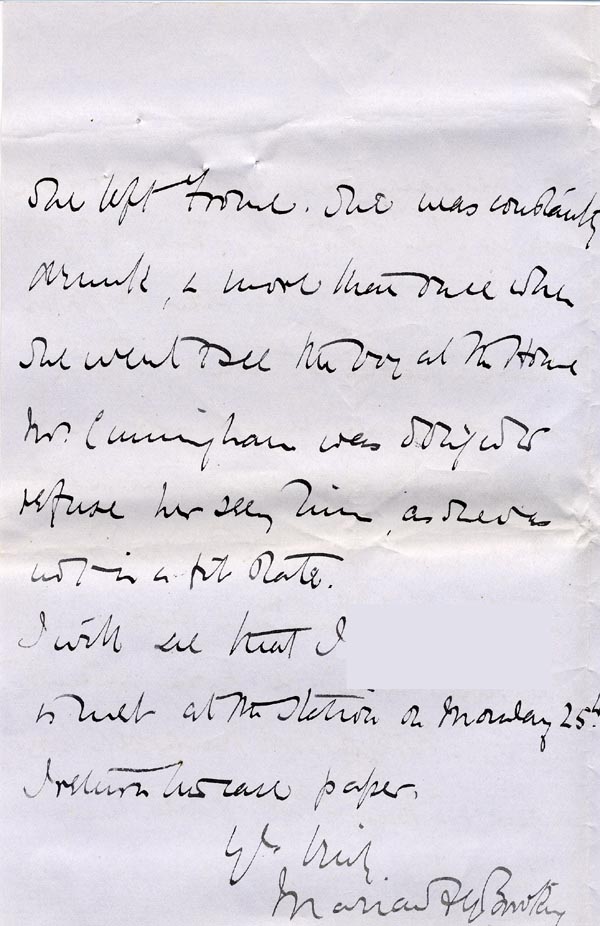 she left Frome. She was constantly
drunk, & more than once when
she went to see the boy at the Home
Mrs. Cunningham was obliged to
refuse her seeing him, as she was
not in a fit state.
I will see that I
is met at the Station on Monday 25th.
I return his case paper.
Yrs truly.
Marian